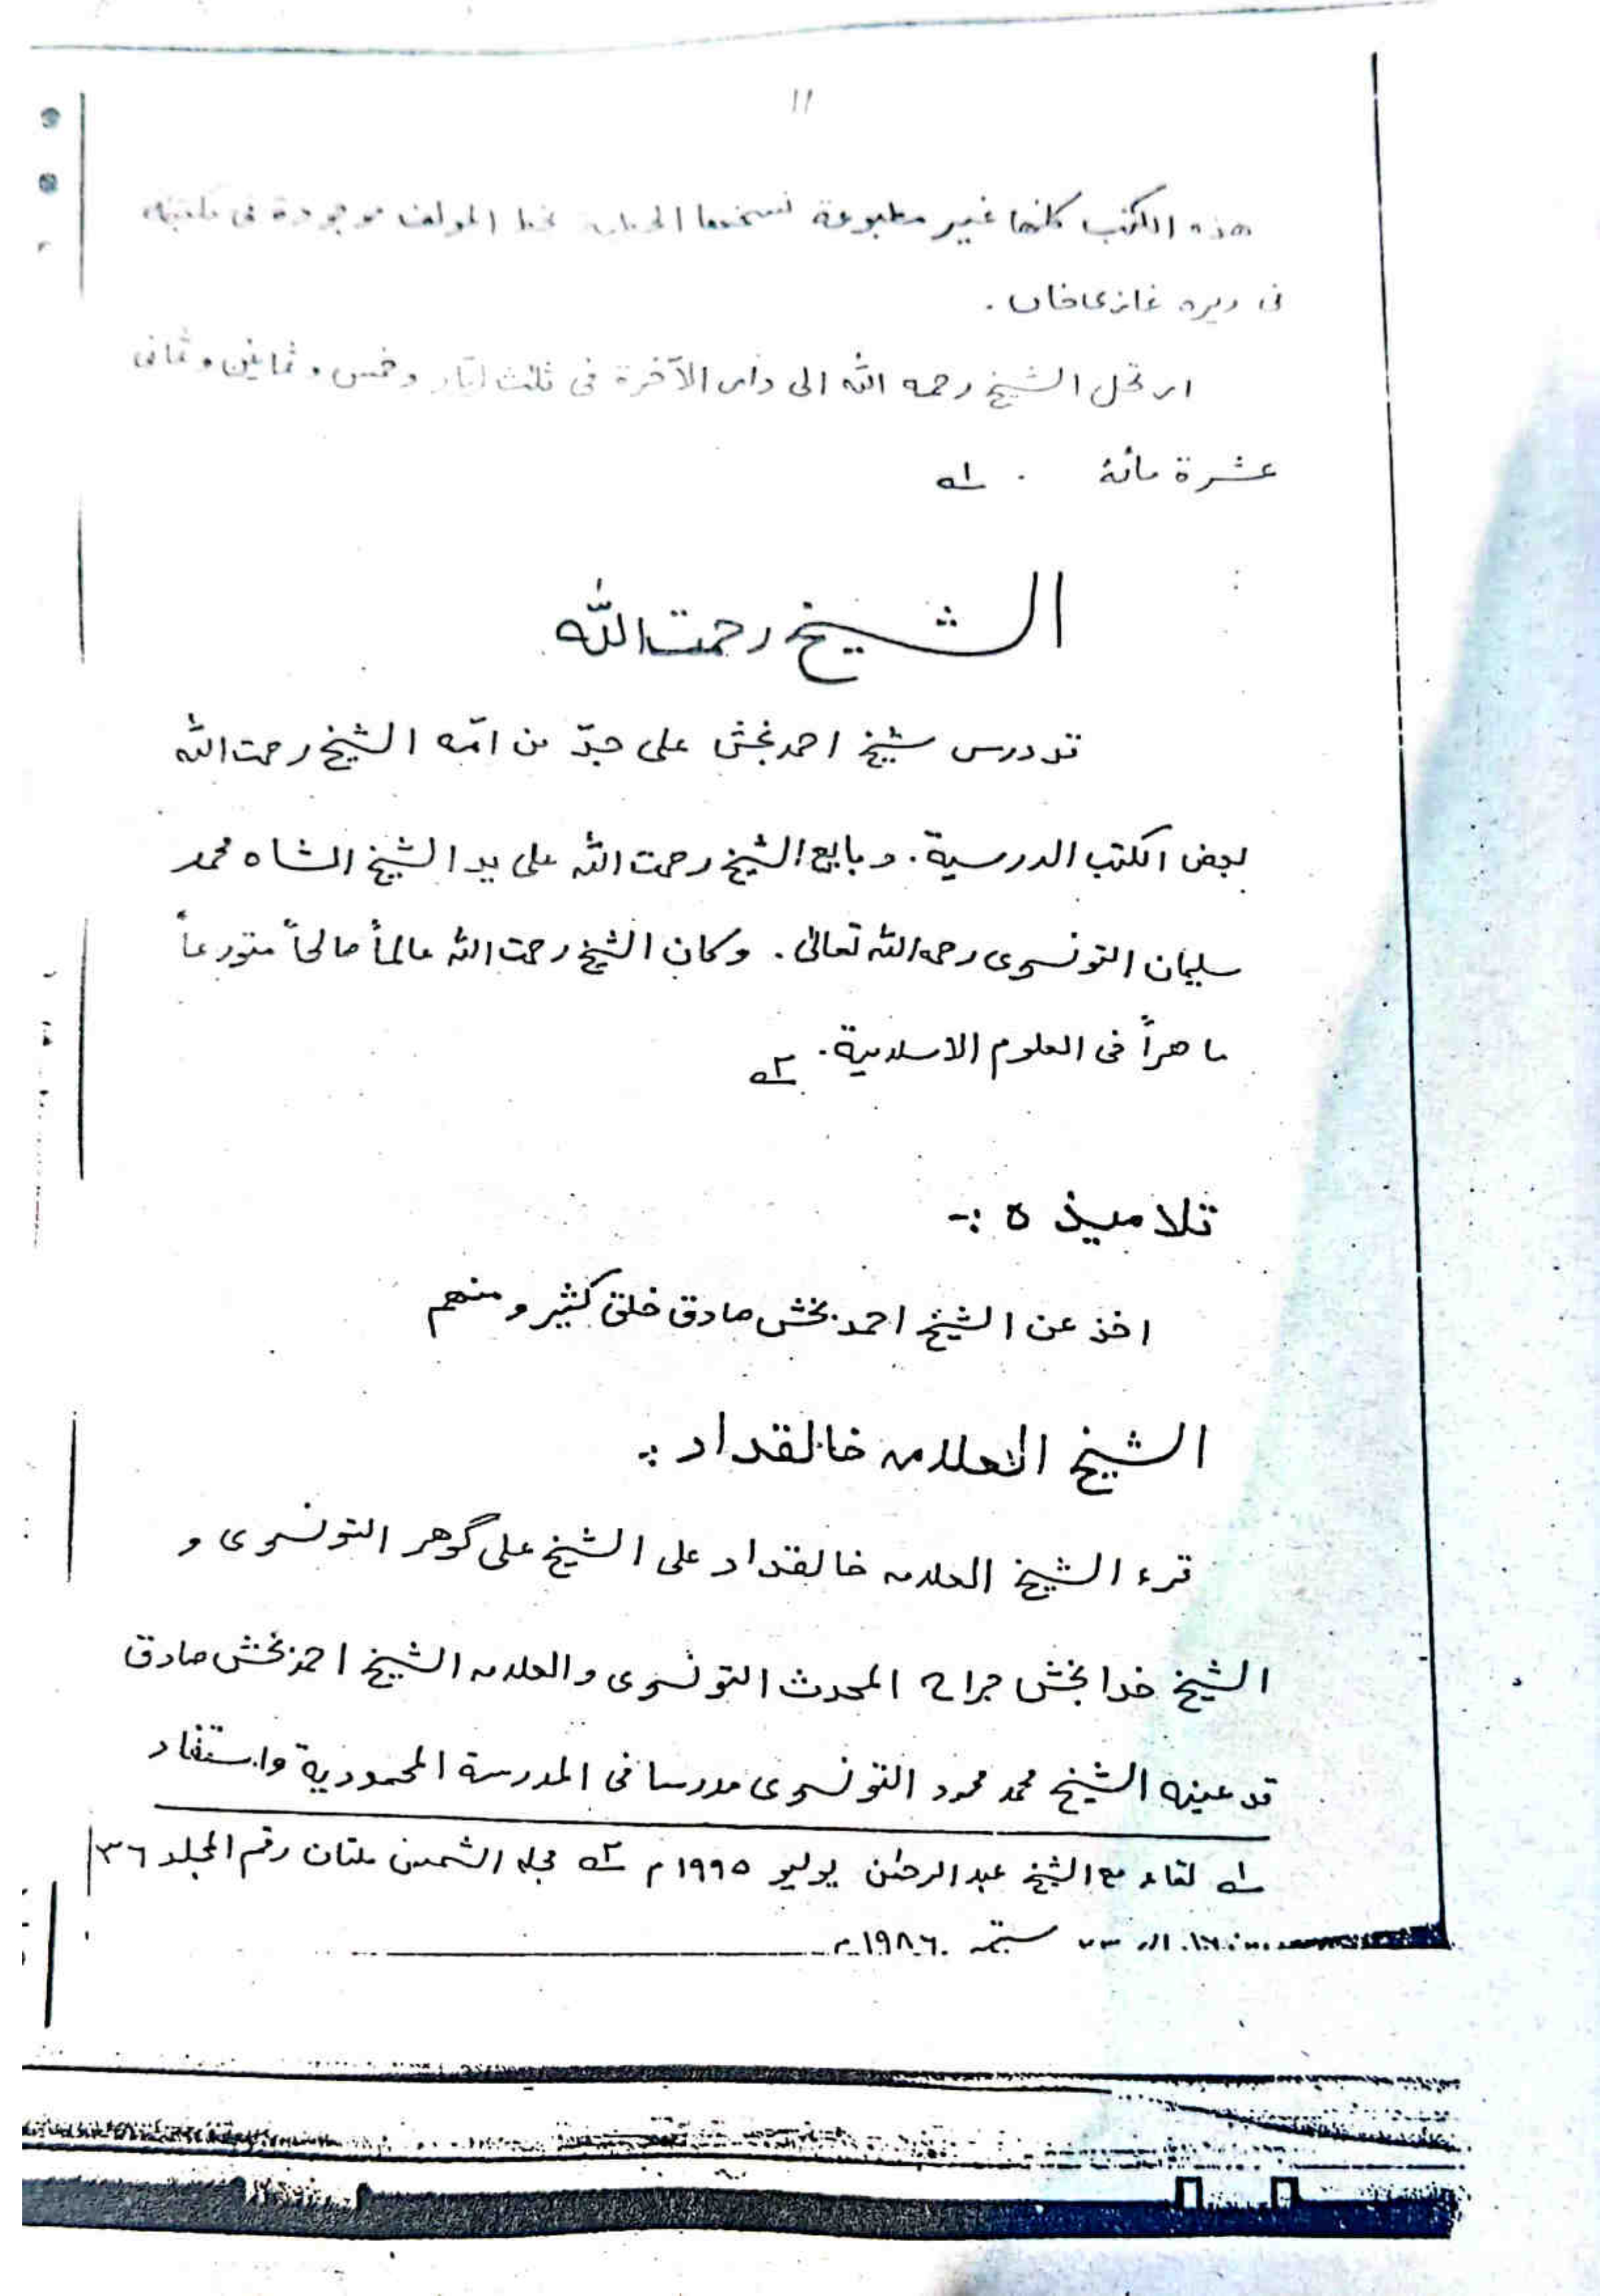 11
هذه الكتب كلها غير مطبوعة نسختها الخطية بخط المولف موجودة فى مكتبته
فى ديره غازيخان .
ارتحل الشيخ رحمه الله الى دار الآخرة فى ثلث وخمس و ثمانين و ثمانى
عشرة مائة . ١ه
الشيخ رحمت الله
قد درس شيخ احمد بخش على جدّ من امّه الشيخ رحمت الله
بعض الكتب الدرسية . و بايع الشيخ رحمت الله على يد الشيخ الشاه محمد
سليمان التونسوى رحمه الله تعالىٰ . وكان الشيخ رحمت الله عالماً صالحاً متورعاً
ماهراً فى العلوم الاسلامية . ٢ه
تلاميذه :-
اخذ عن الشيخ احمد بخش صادق خلق كثير و منهم
الشيخ العلامه خالقداد :
قرء الشيخ العلامه خالقداد على الشيخ على گوهر التونسوى و
الشيخ خدا بخش جراح المحدث التونسوى والعلامه الشيخ احمد بخش صادق
قد عينه الشيخ محمد محمود التونسوى مدرسا فى المدرسة المحمودية واستفاد
١ه لقاء مع الشيخ عبد الرحمٰن يوليو ١٩٩٥م ٢ه مجله الشمس ملتان رقم المجلد ٣٦
١٩٨٦م